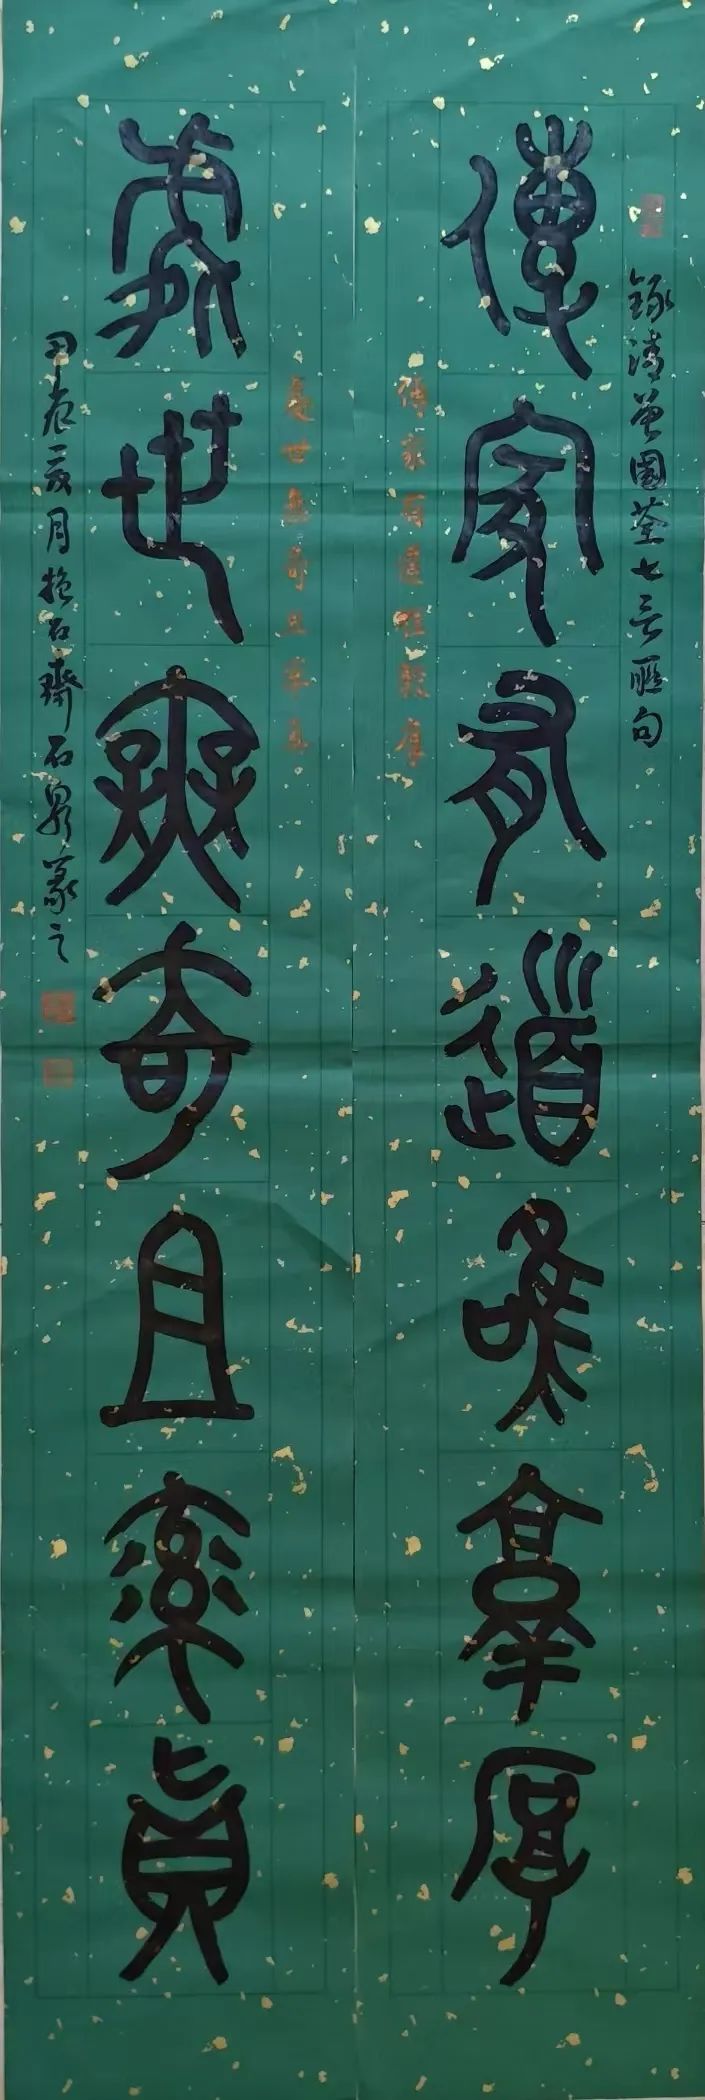 録清曾國荃七言聯句
傳家有道唯敦厚
傳家有道唯敦厚
處世無奇且率真
處世無奇且率真
甲辰夏月抱石齋石泉篆之